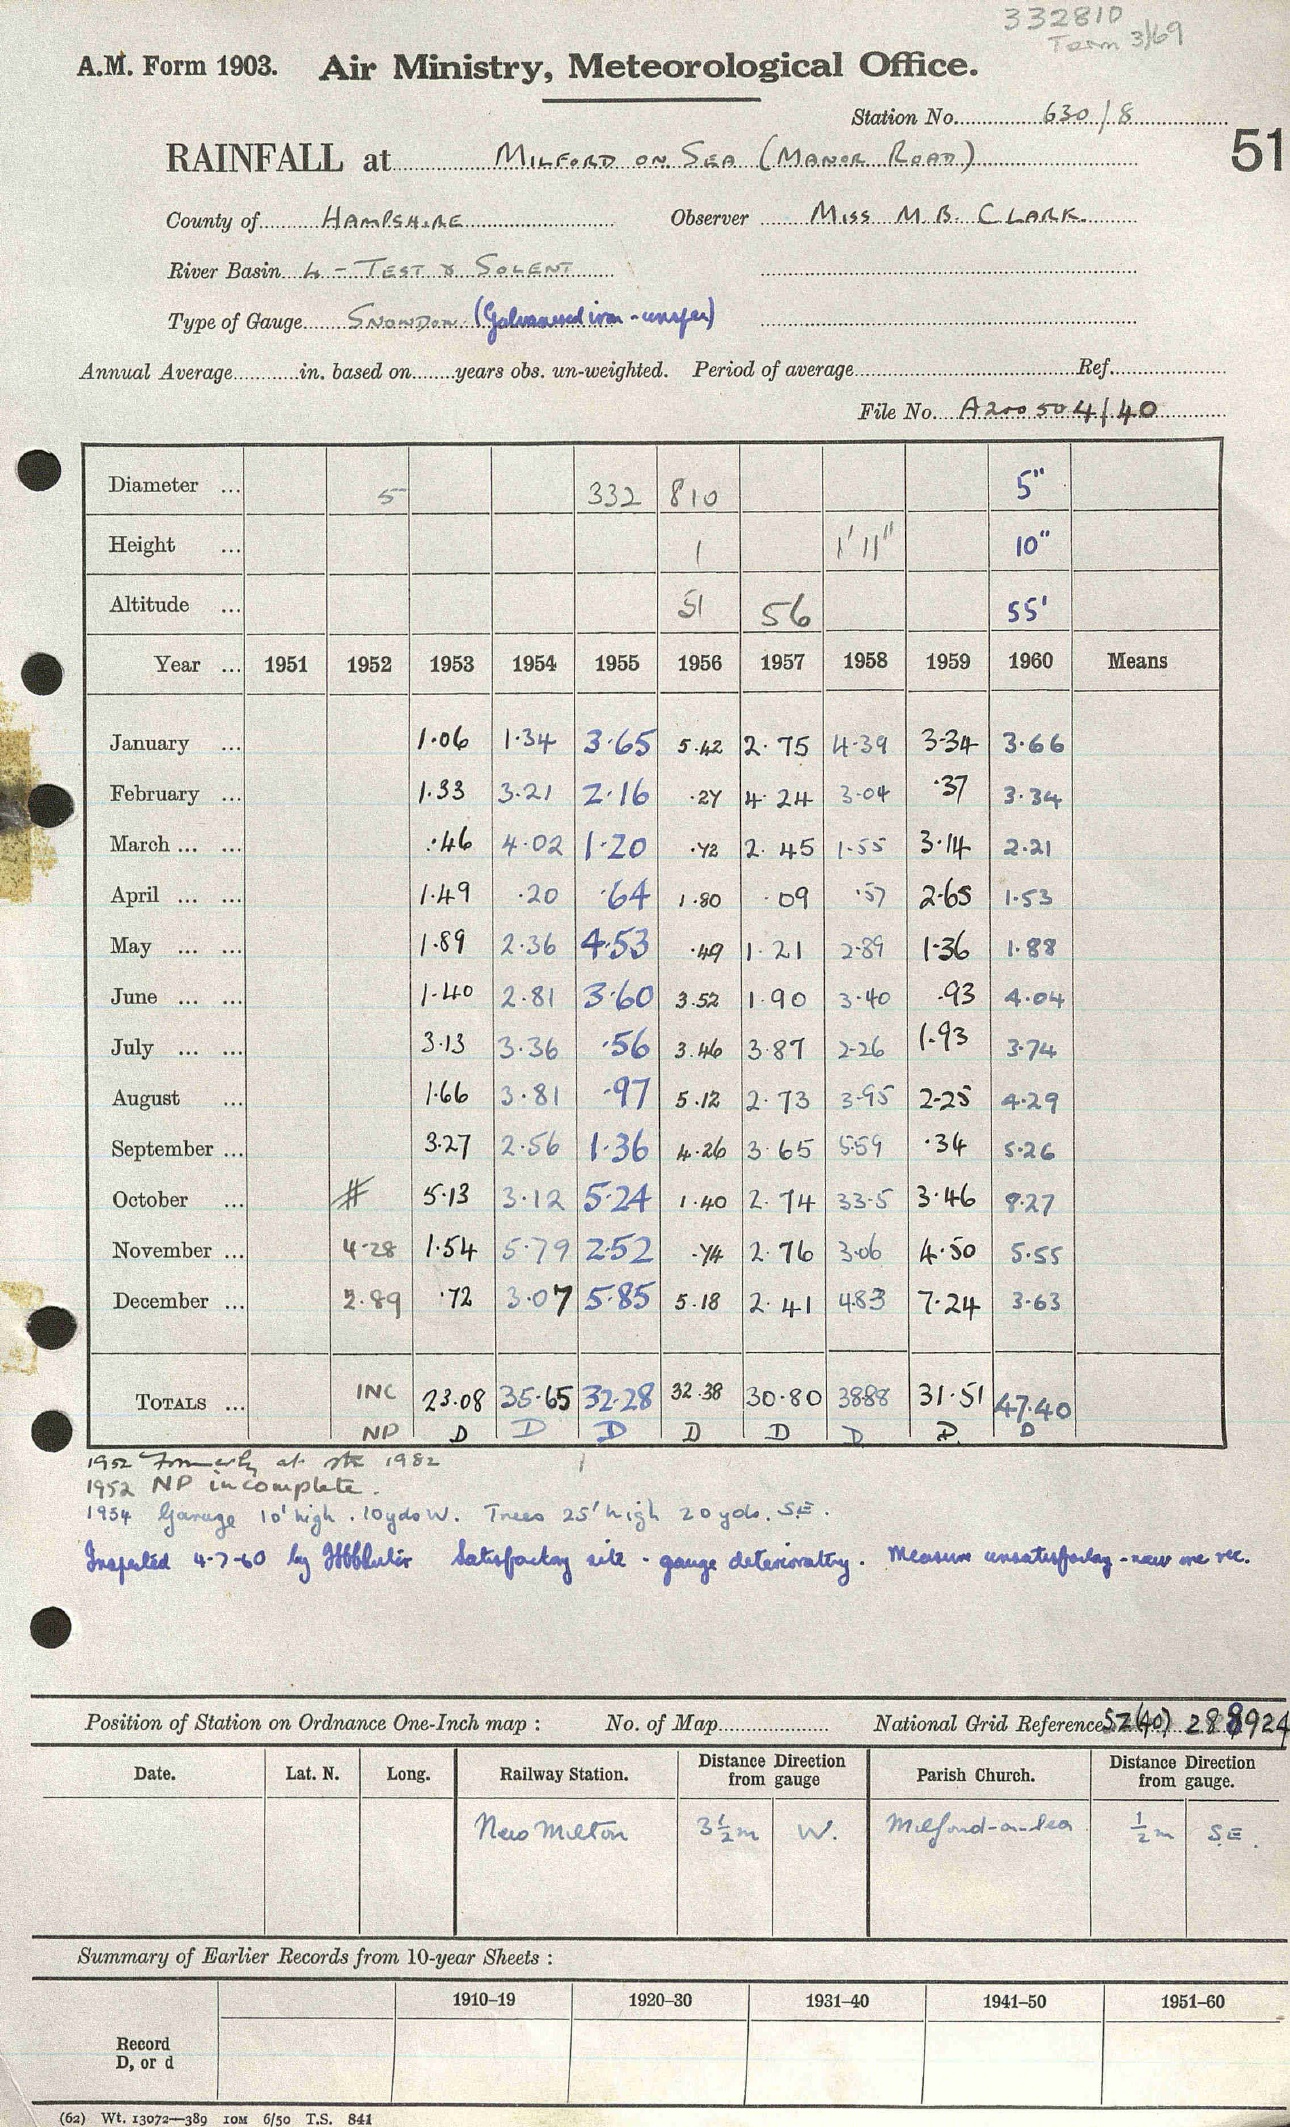 332810
Term 3/69
A.M. Form 1903. Air Ministry, Meteorological Office.
Station No. 630/8
51
RAINFALL at MILFORD ON SEA (MANOR ROAD)
County of HAMPSHIRE Observer MISS M B. CLARK.
River Basin 4 - TEST & SOLENT
Type of Gauge SNOWDON (Galvanised iron -
Annual Average in. based on years obs. un-weighted. Period of average Ref.
File No. A200504/40
Diameter ... 5 332 810 5"
Height ... 1 1' 11" 10"
Altitude ... 51 56 55'
Year ... 1951 1952 1953 1954 1955 1956 1957 1958 1959 1960 Means
January ... 1.06 1.34 3.65 5.42 2.75 4.39 3.34 3.66
February ... 1.33 3.21 2.16 .27 4.24 3.04 .37 3.34
March ... ... .46 4.02 1.20 .72 2.45 1.55 3.14 2.21
April ... ... 1.49 .20 .64 1.80 .09 .57 2.65 1.53
May ... ... 1.89 2.36 4.53 .49 1.21 2.89 1.36 1.88
June ... ... 1.40 2.81 3.60 3.52 1.90 3.40 .93 4.04
July ... ... 3.13 3.36 .56 3.46 3.87 2.26 1.93 3.74
August ... 1.66 3.81 .97 5.12 2.73 3.95 2.25 4.29
September ... 3.27 2.56 1.36 4.26 3.65 5.59 .34 5.26
October ... # 5.13 3.12 5.24 1.40 2.74 33.5 3.46 8.27
November ... 4.28 1.54 5.79 2.52 .74 2.76 3.06 4.50 5.55
December ... 2.89 .72 3.07 5.85 5.18 2.41 4.83 7.24 3.63
TOTALS ... INC 23.08 35.65 32.28 32.38 30.80 38.88 31.51 47.40
NP D D D D D D D. D
1952 Formerly at stn 1982
1952 NP incomplete.
1954 Garage 10' high. 10yds W. Trees 25' high 20 yds. S.E.
Inspected 4-7-60 by Satisfactory site - gauge deteriorating. Measure unsatisfactory - new one rec.
Position of Station on Ordnance One-Inch map : No. of Map National Grid Reference SZ(40) 288924
Date. Lat. N. Long. Railway Station. Distance Direction from gauge Parish Church. Distance Direction from gauge.
New Milton 3½m W. Milford-on-Sea ½m S.E.
Summary of Earlier Records from 10-year Sheets :
1910–19 1920–30 1931–40 1941–50 1951–60
Record
D, or d
(62) Wt. 13072—389 10M 6/50 T.S. 841